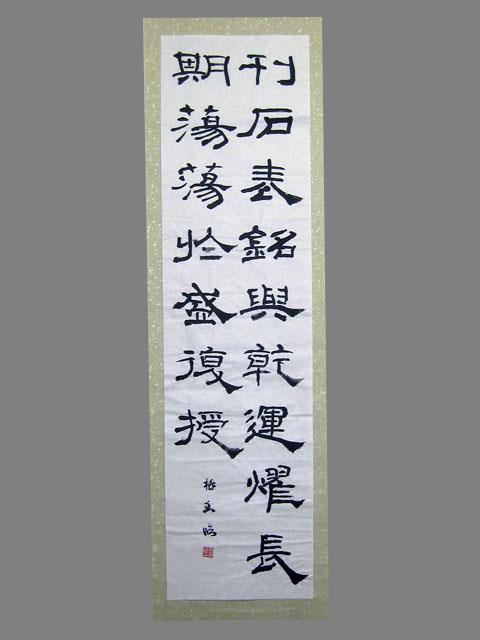 刊石表銘與乾運燿長
期蕩蕩於盛復授
臨